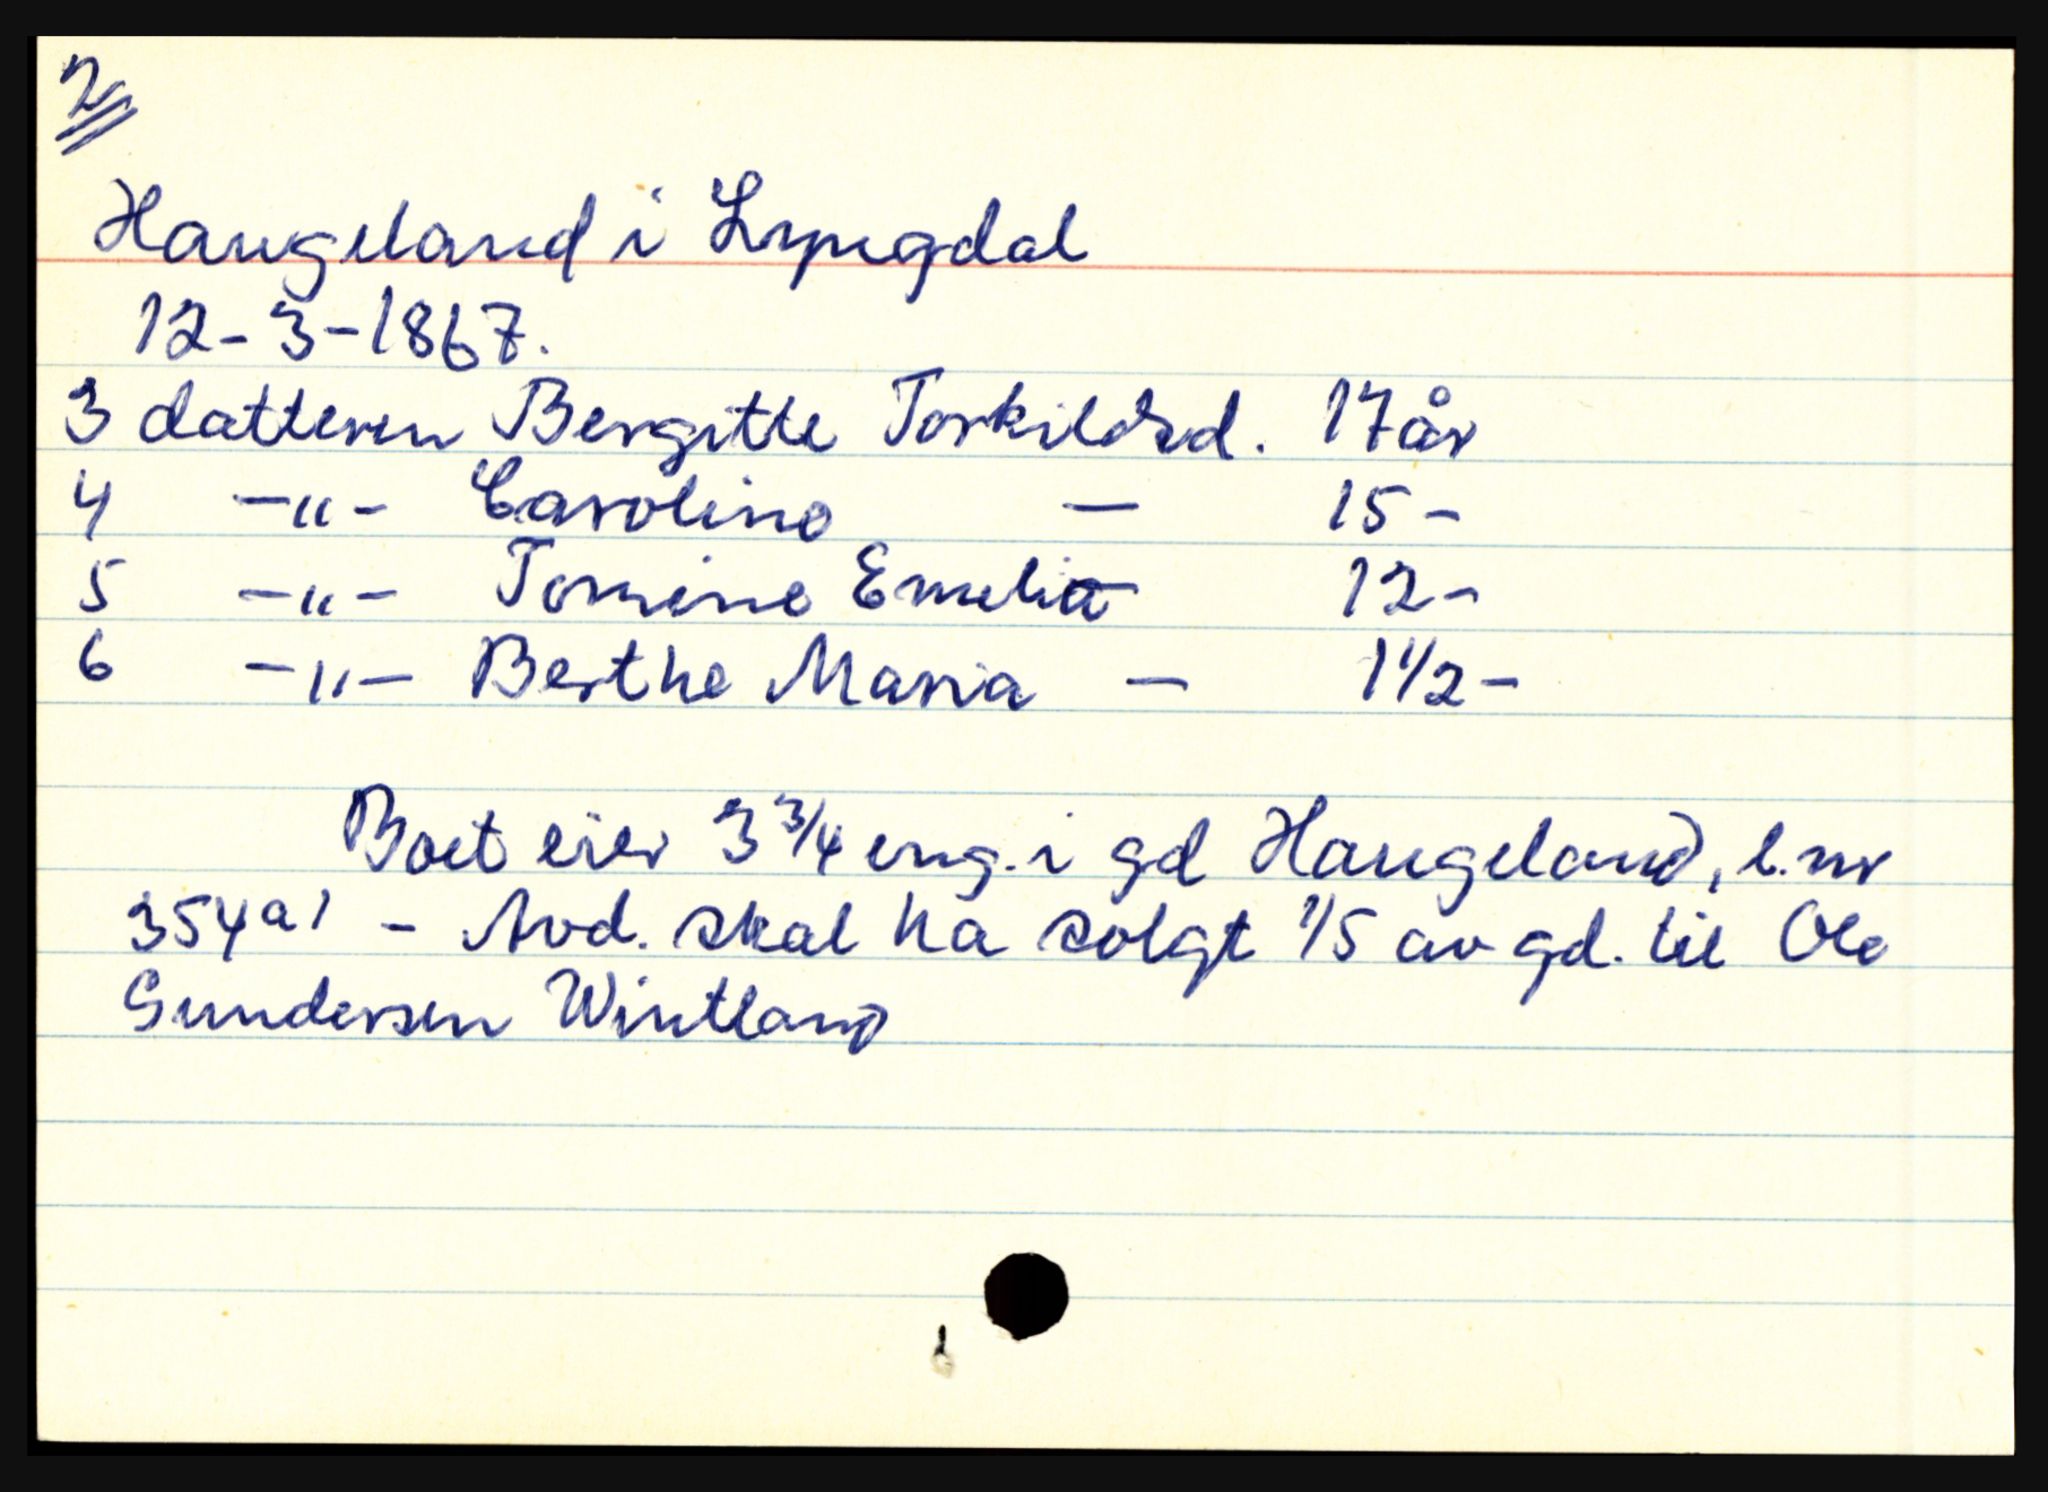 2
Haugeland i Lyngdal
12-3-1867.
3 datteren Bergitte Torkildsd. 17 år
4 -"- Caroline — 15 -
5 -"- Tomine Emelia — 12 -
6 -"- Berthe Maria — 1 1/2 -
Boet eier 3 3/4 eng. i gd Haugeland, l.nr
354a1 - Avd. skal ha solgt 1/5 av gd. til Ole
Gundersen Wintland